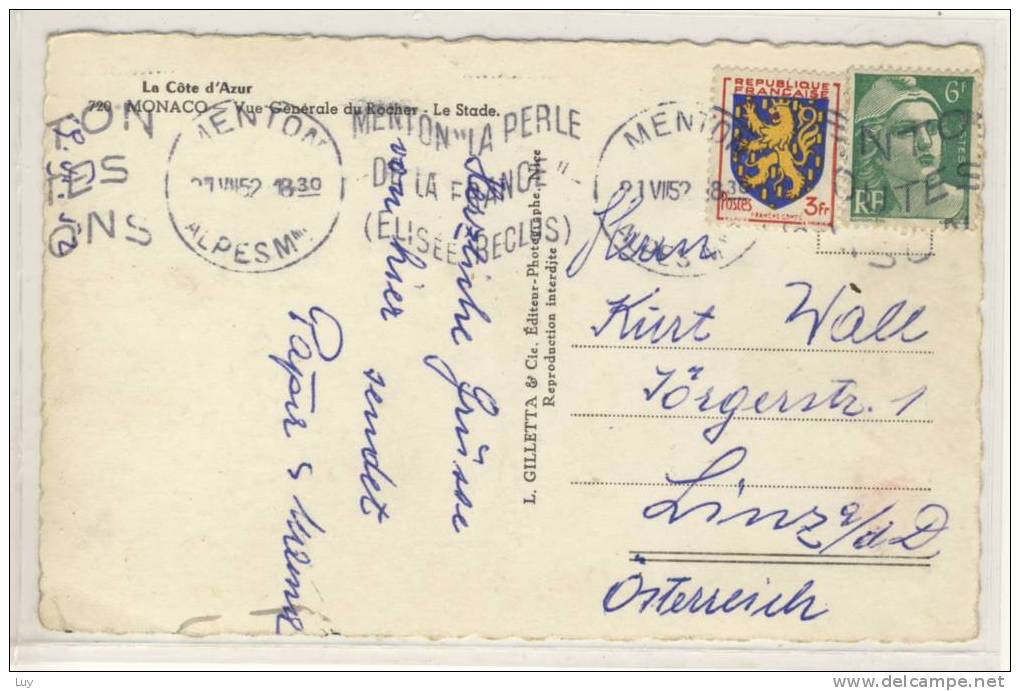 La Côte d'Azur
720 MONACO - Vue Générale du Rocher - Le Stade.
TON
NS
MENTON
21 VII 52 18 30
ALPES Mmes
MENTON "LA PERLE
DE LA FRANCE"
(ELISÉE RECLUS)
MENTON
21 VII 52 18 30
ALPES M
REPUBLIQUE
FRANÇAISE
Postes
3Fr
FRANCHE-COMTÉ
6F
POSTES
RF
NTO
TES
Herzliche Grüsse
von hier sendet
Papa &
L. GILLETTA & Cie. Éditeur-Photographe, Nice
Reproduction interdite
Herrn
Kurt Wall
Jörgerstr. 1
Linz a/d D
Österreich
Luy